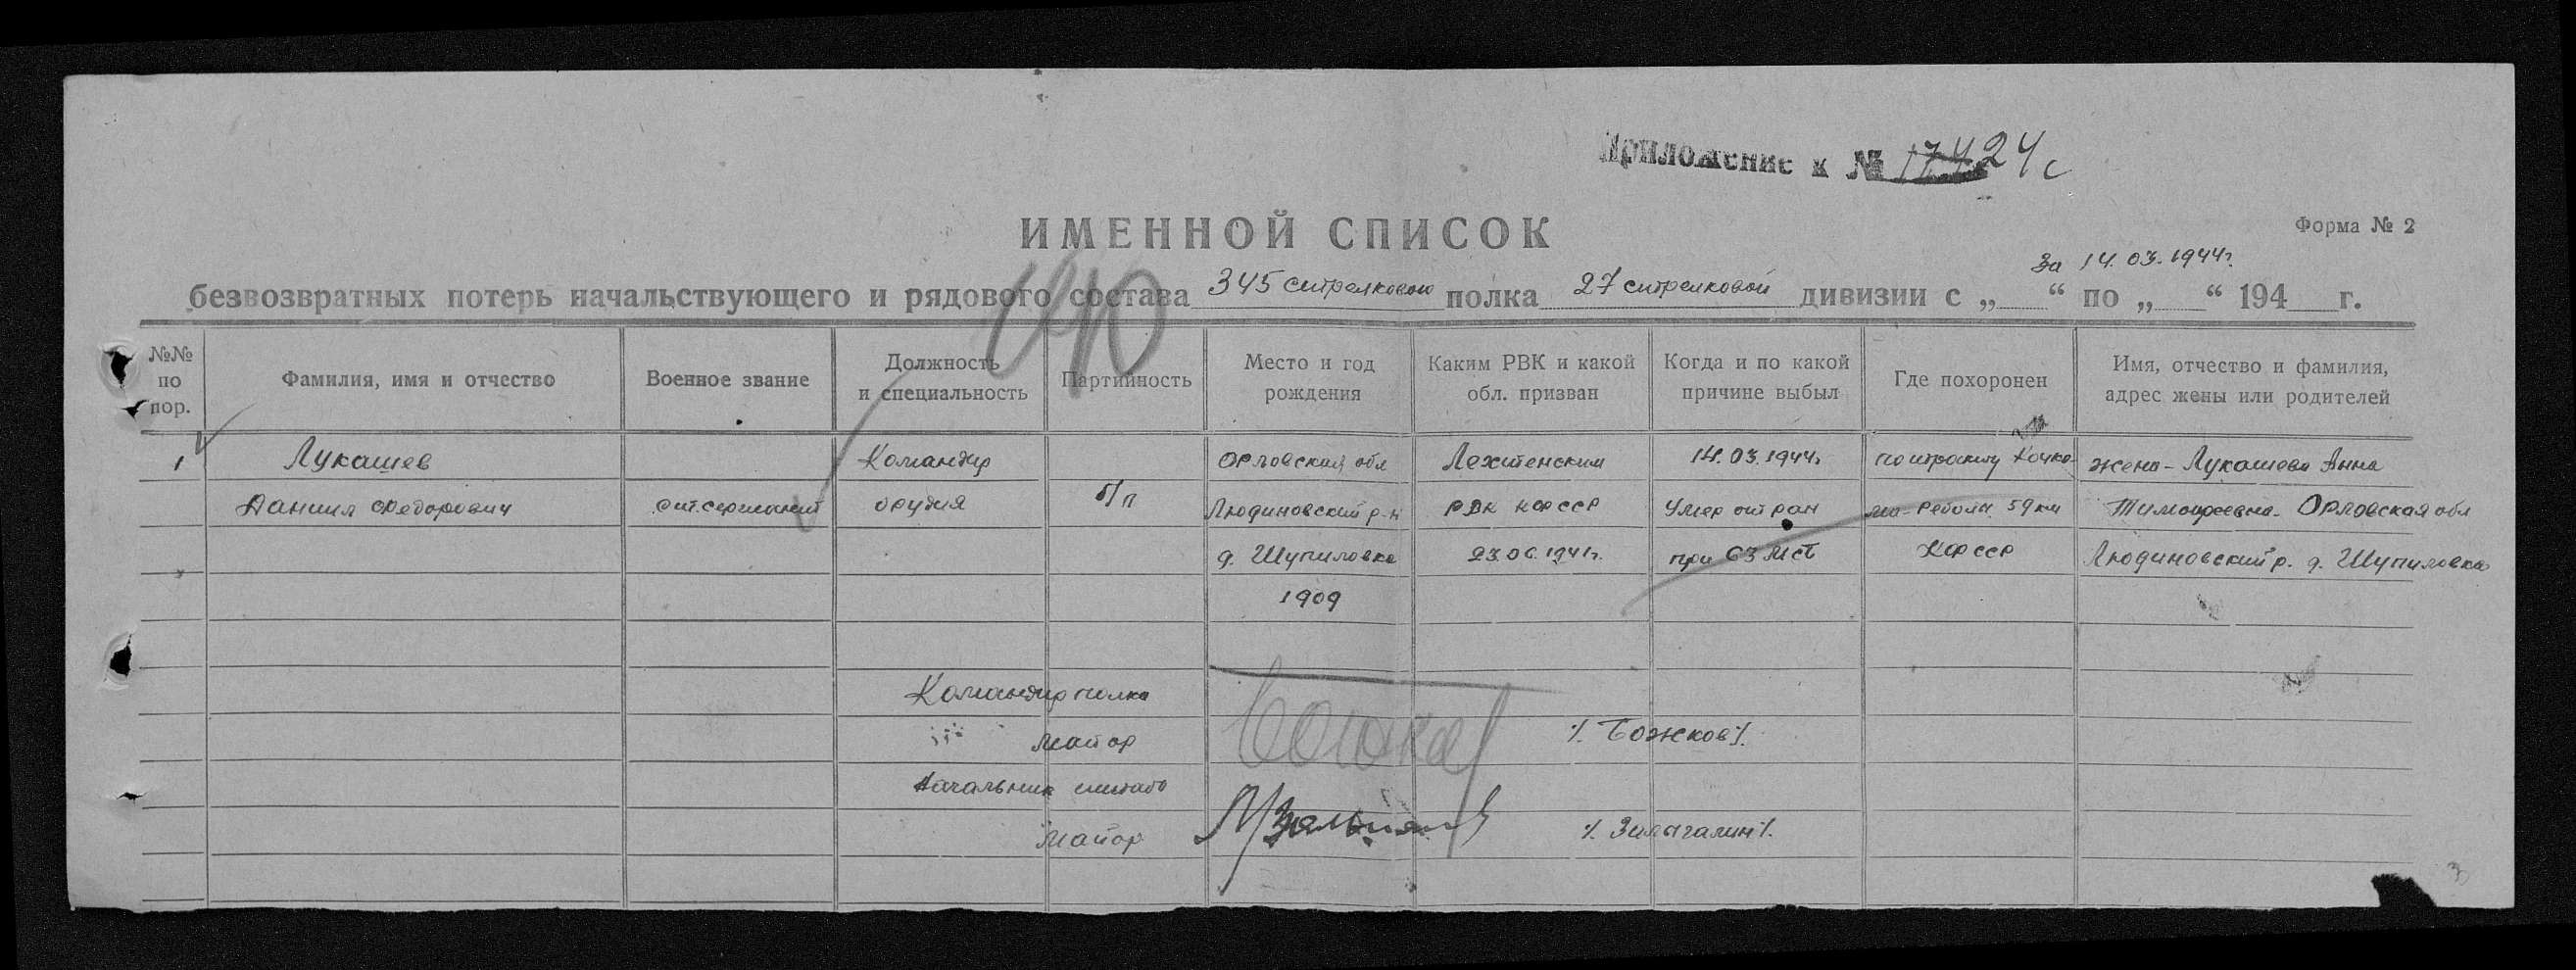 Приложение к № 17424с
ИМЕННОЙ СПИСОК
Форма № 2
за 14.03.1944г.
безвозвратных потерь начальствующего и рядового состава 345 стрелкового полка 27 стрелковой дивизии с „ “ по „ “ 194 г.
№№ по пор.
Фамилия, имя и отчество
Военное звание
Должность и специальность
Партийность
Место и год рождения
Каким РВК и какой обл. призван
Когда и по какой причине выбыл
Где похоронен
Имя, отчество и фамилия, адрес жены или родителей
1 Лукашев Командир Орловская обл 14.03.1944г жена - Лукашева Анна
Даниил Федорович ст. сержант орудия б/п Людиновский р-н РВК КФССР Умер от ран Реболы 59 км Тимофеевна - Орловская обл
д. Шупиловка 23.06.1941г. при 63 МСБ КФССР Людиновский р. д. Шупиловка
1909
Командир полка
Майор /. Божков /.
Начальник штаба
Майор